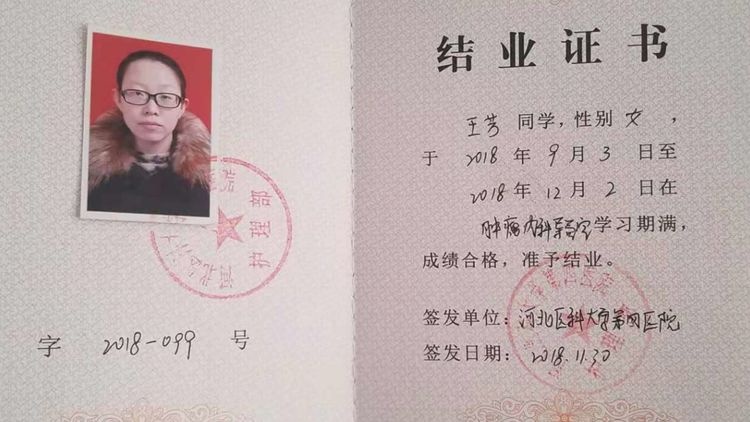 字 2018-099 号
护理部
结业证书
王芳 同学，性别 女 ，
于 2018 年 9 月 3 日至
2018 年 12 月 2 日在
肿瘤内科 学习期满，
成绩合格，准予结业。
签发单位：河北医科大学第四医院
签发日期：2018.11.30
护理部